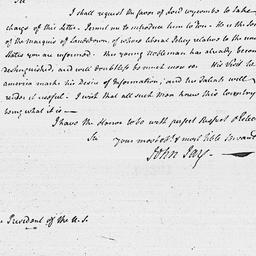 Sir
I shall request the favor of Lord Wycombe to take
charge of this Letter. Permit me to introduce him to You. He is the Son
of the marquis of Lansdown, of whose liberal Policy relative to the united
States you are informed. This young Nobleman has already become
distinguished, and will doubtless be much more so. His Visit to
america marks his Desire of Information; and his Talents will
render it useful. I wish that all such Men knew this Country
being what it is —
I have the Honor to be with perfect Respect & Esteem
Sir your most obt. & most hble Servant
John Jay —
President of the U.S.